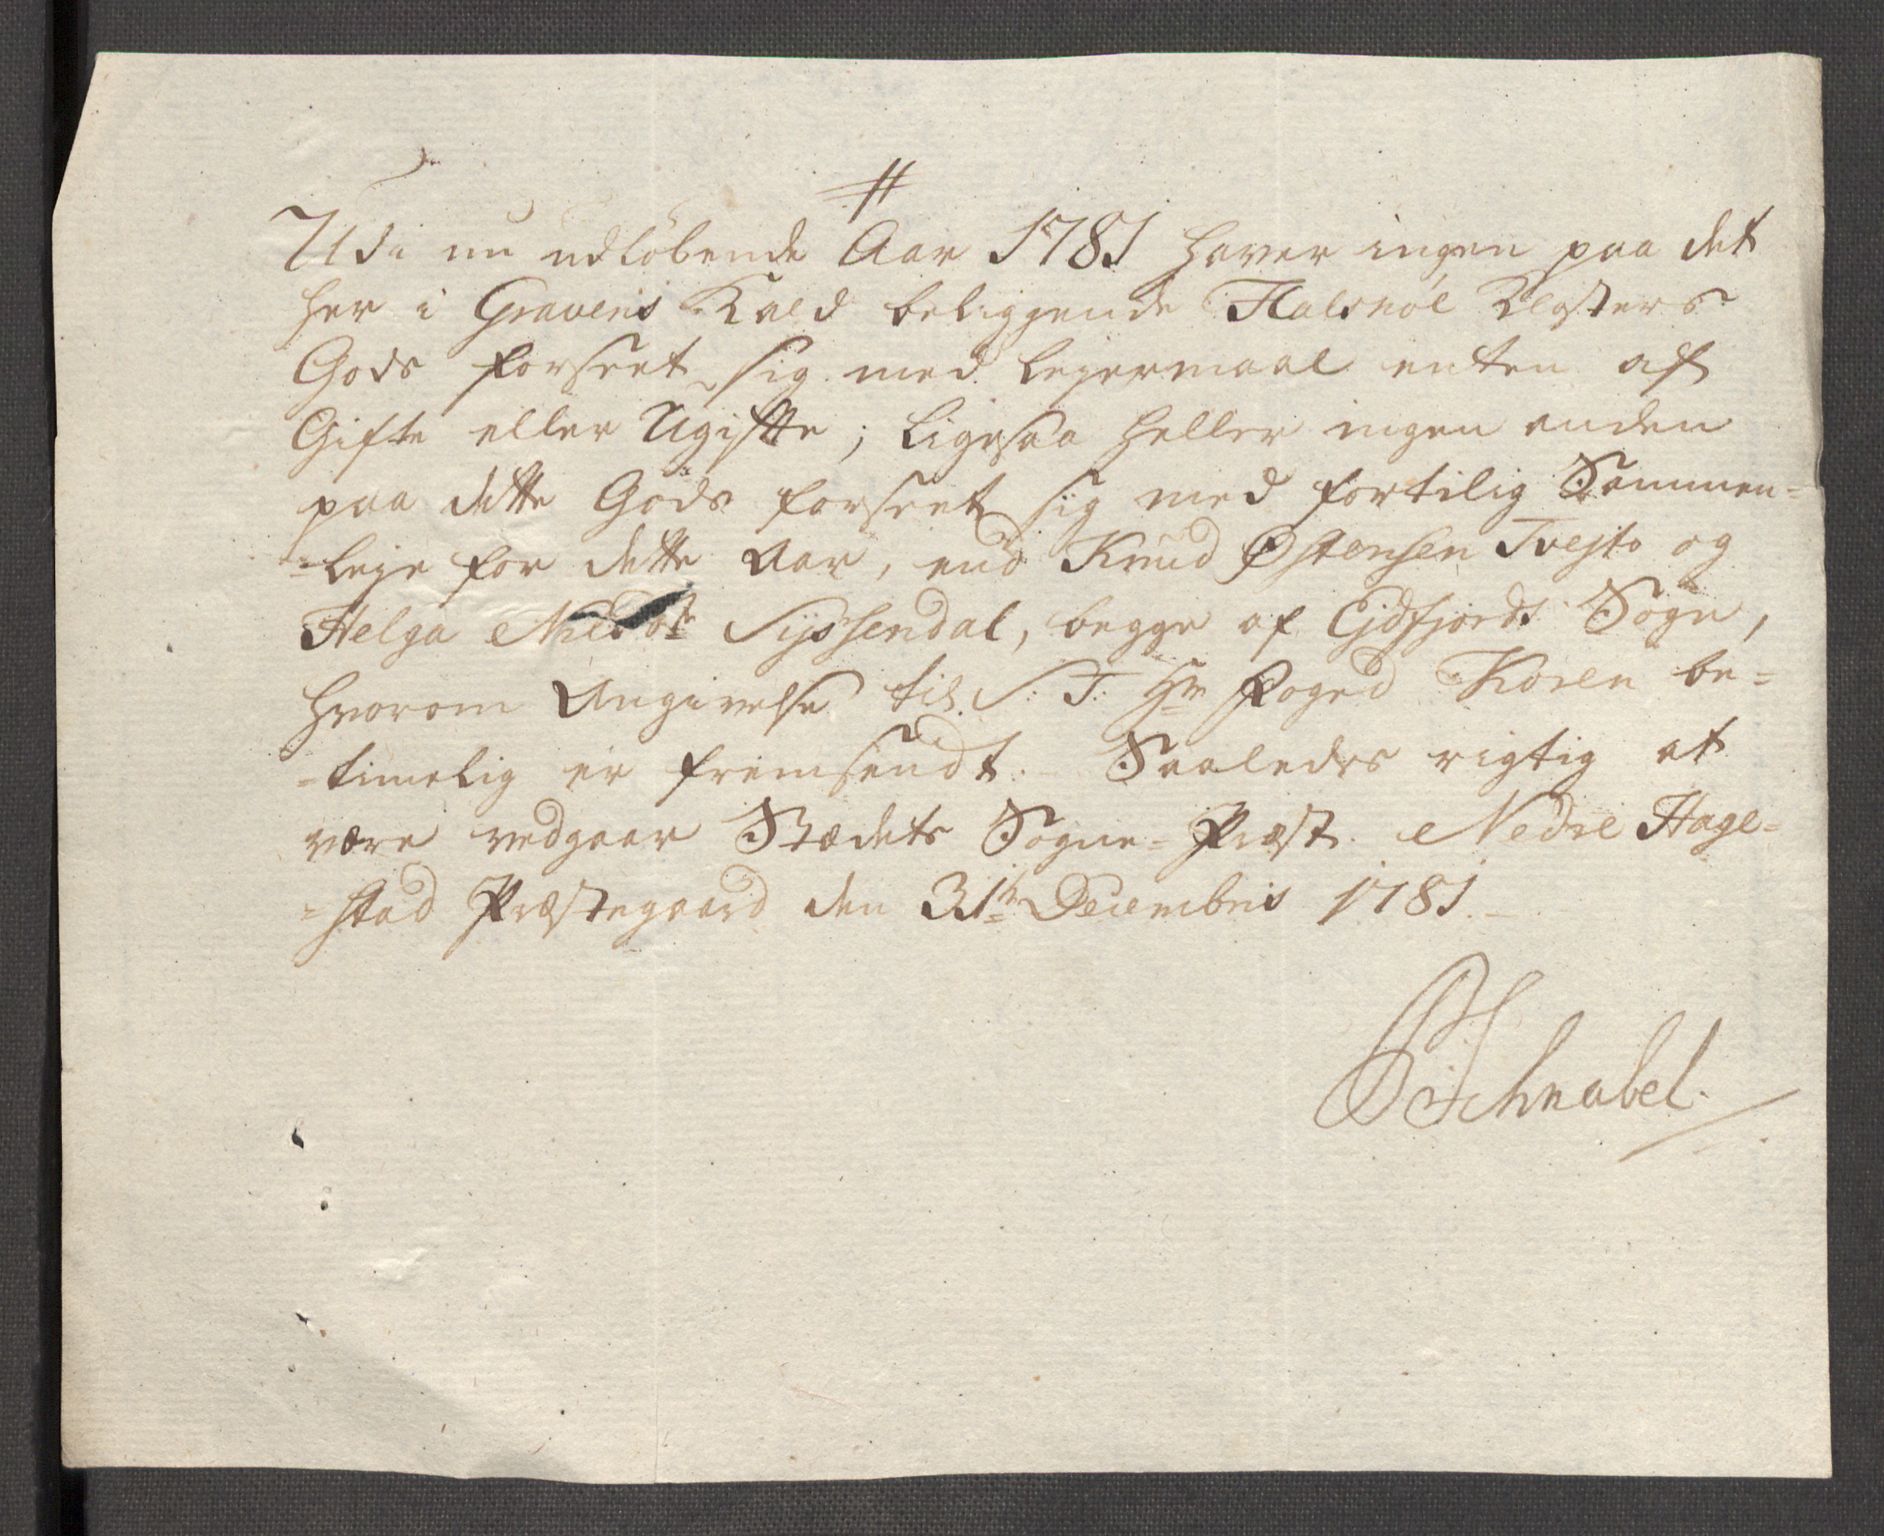 Udi nu udløbende Aar 1781 haver ingen paa det
her i Gravens Kald beliggende Halsnöe Klosters
Gods forseet sig med Lejermaal enten af
Gifte eller Ugifte; ligesaa heller ingen anden
paa dette Gods forseet sig med fortilig Sammen=
=leje for dette Aar, end Knud Østensen Tvejto og
Helga Sÿssendal, begge af Ejdfjords Sogn,
hvorom Angivelse til S: T: Hr Foged Koren be=
=timelig er fremsendt. Saaledes rigtig at
være vedgaar Stædets Sogne=Præst. Nedre Hage=
=stad Præstegaard den 31te Decembris 1781.
Schnabel.